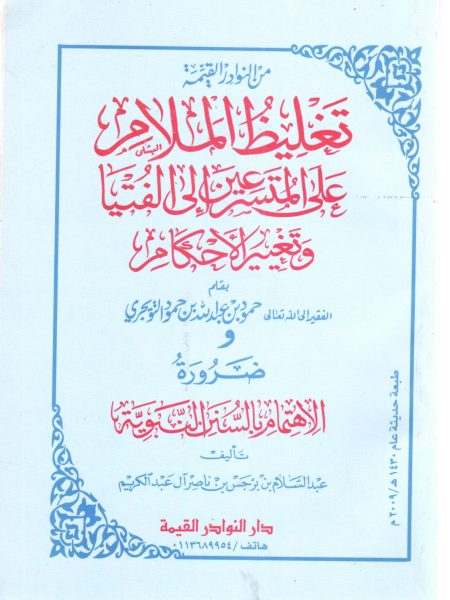 من النوادر القيمة
تغليظ الملام
على المتسرعين إلى الفتيا
وتغيير الأحكام
بقلم
الفقير إلى الله تعالى حمود بن عبدالله بن حمود التويجري
و
ضرورة
الاهتمام بالسنن النبوية
تأليف
عبدالسلام بن برجس بن ناصر آل عبدالكريم
دار النوادر القيمة
هاتف / ٠١١٣٦٨٩٩٥٤
طبعة حديثة عام ١٤٣٠ هـ / ٢٠٠٩ م